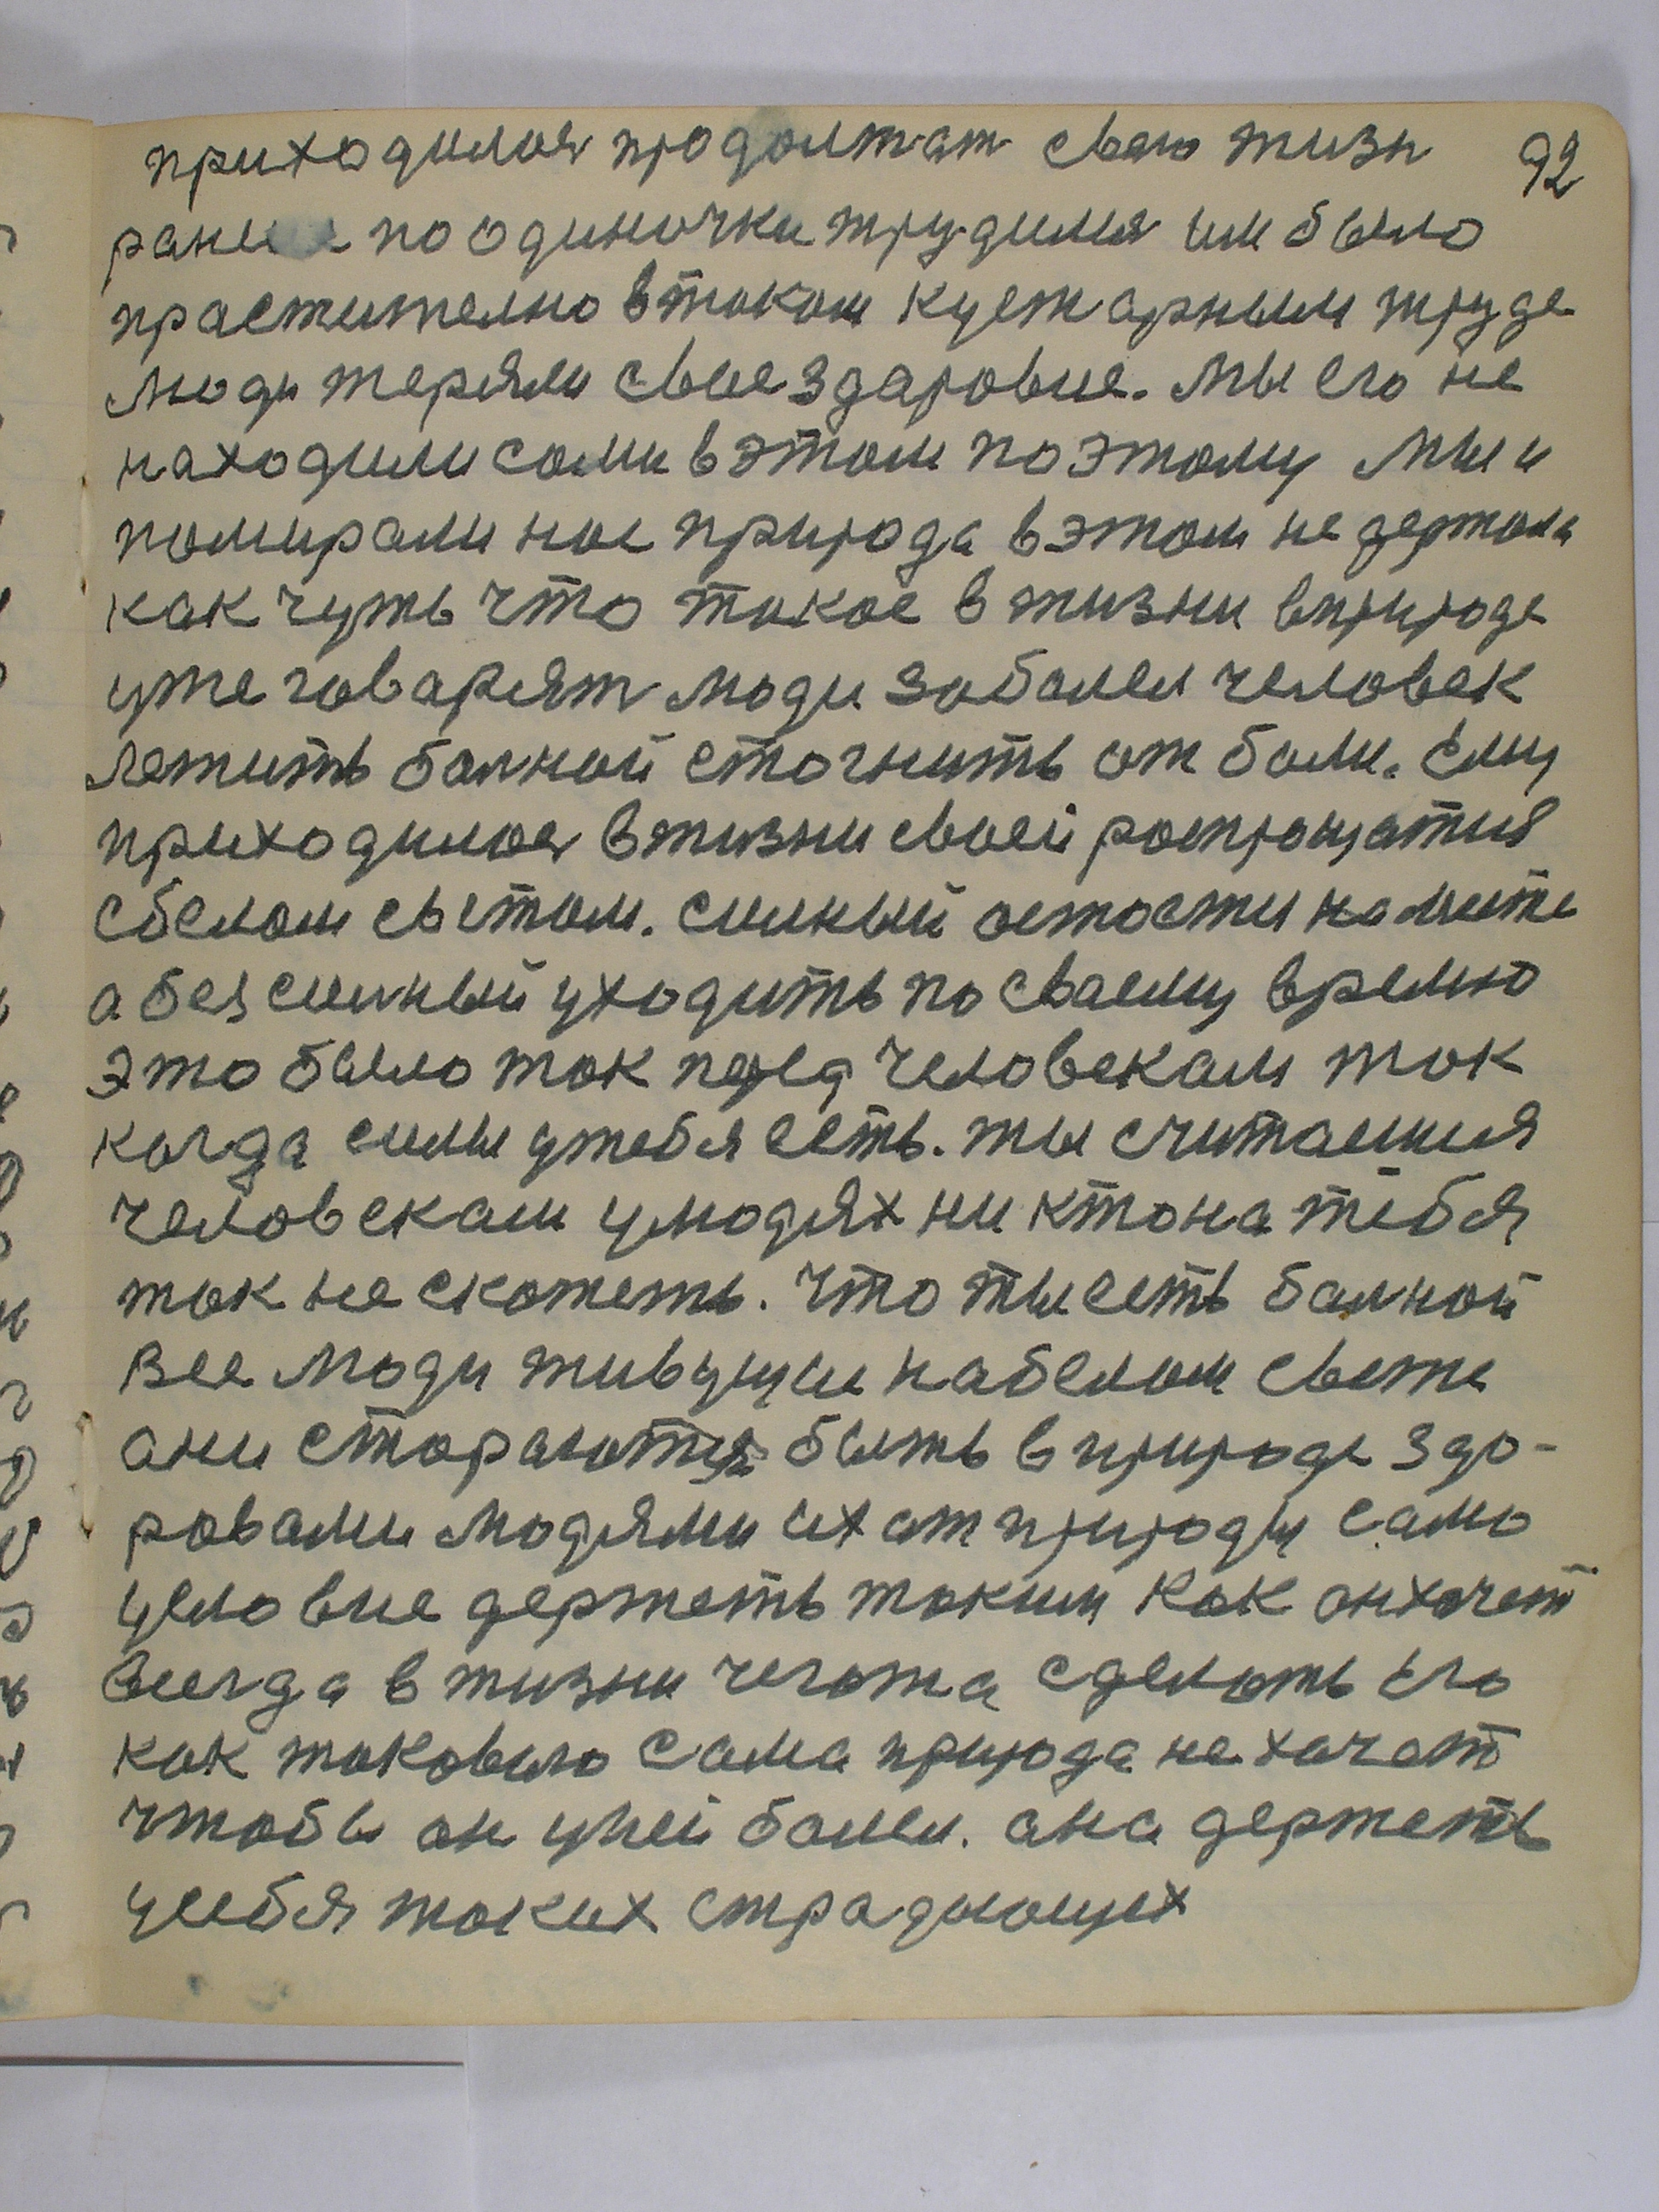 92
приходилося продолжат свою жизн
ранше по одиночки трудилися им было
прастително в таком кустарным труде
люди теряли свие здаровие. Мы его не
находили сами в этом поэтому мы и
помирали нас природа в этом не держала
как чуть что такое в жизни в природе
уже говарят люди заболел человек
лежить балной стогнить от боли. ему
приходилося в жизни своей роспрощатия
с белом светом. силный остается на мести
а безсилный уходить по сваему времю
это было так перед человекам так
когда силы у тебя есть. ты считаешия
человекам у людях ни кто на тебя
так не скажеть. Что ты есть балной
Все люди живущие на белом свете
ани стораются быть в природе здо-
ровами людями их от природы само
условие держеть таким как он хочет
всегда в жизни чегота сделать его
как таковыго сама природа не хочет
чтобы он у ней болел. ана держеть
у себя таких страдающих